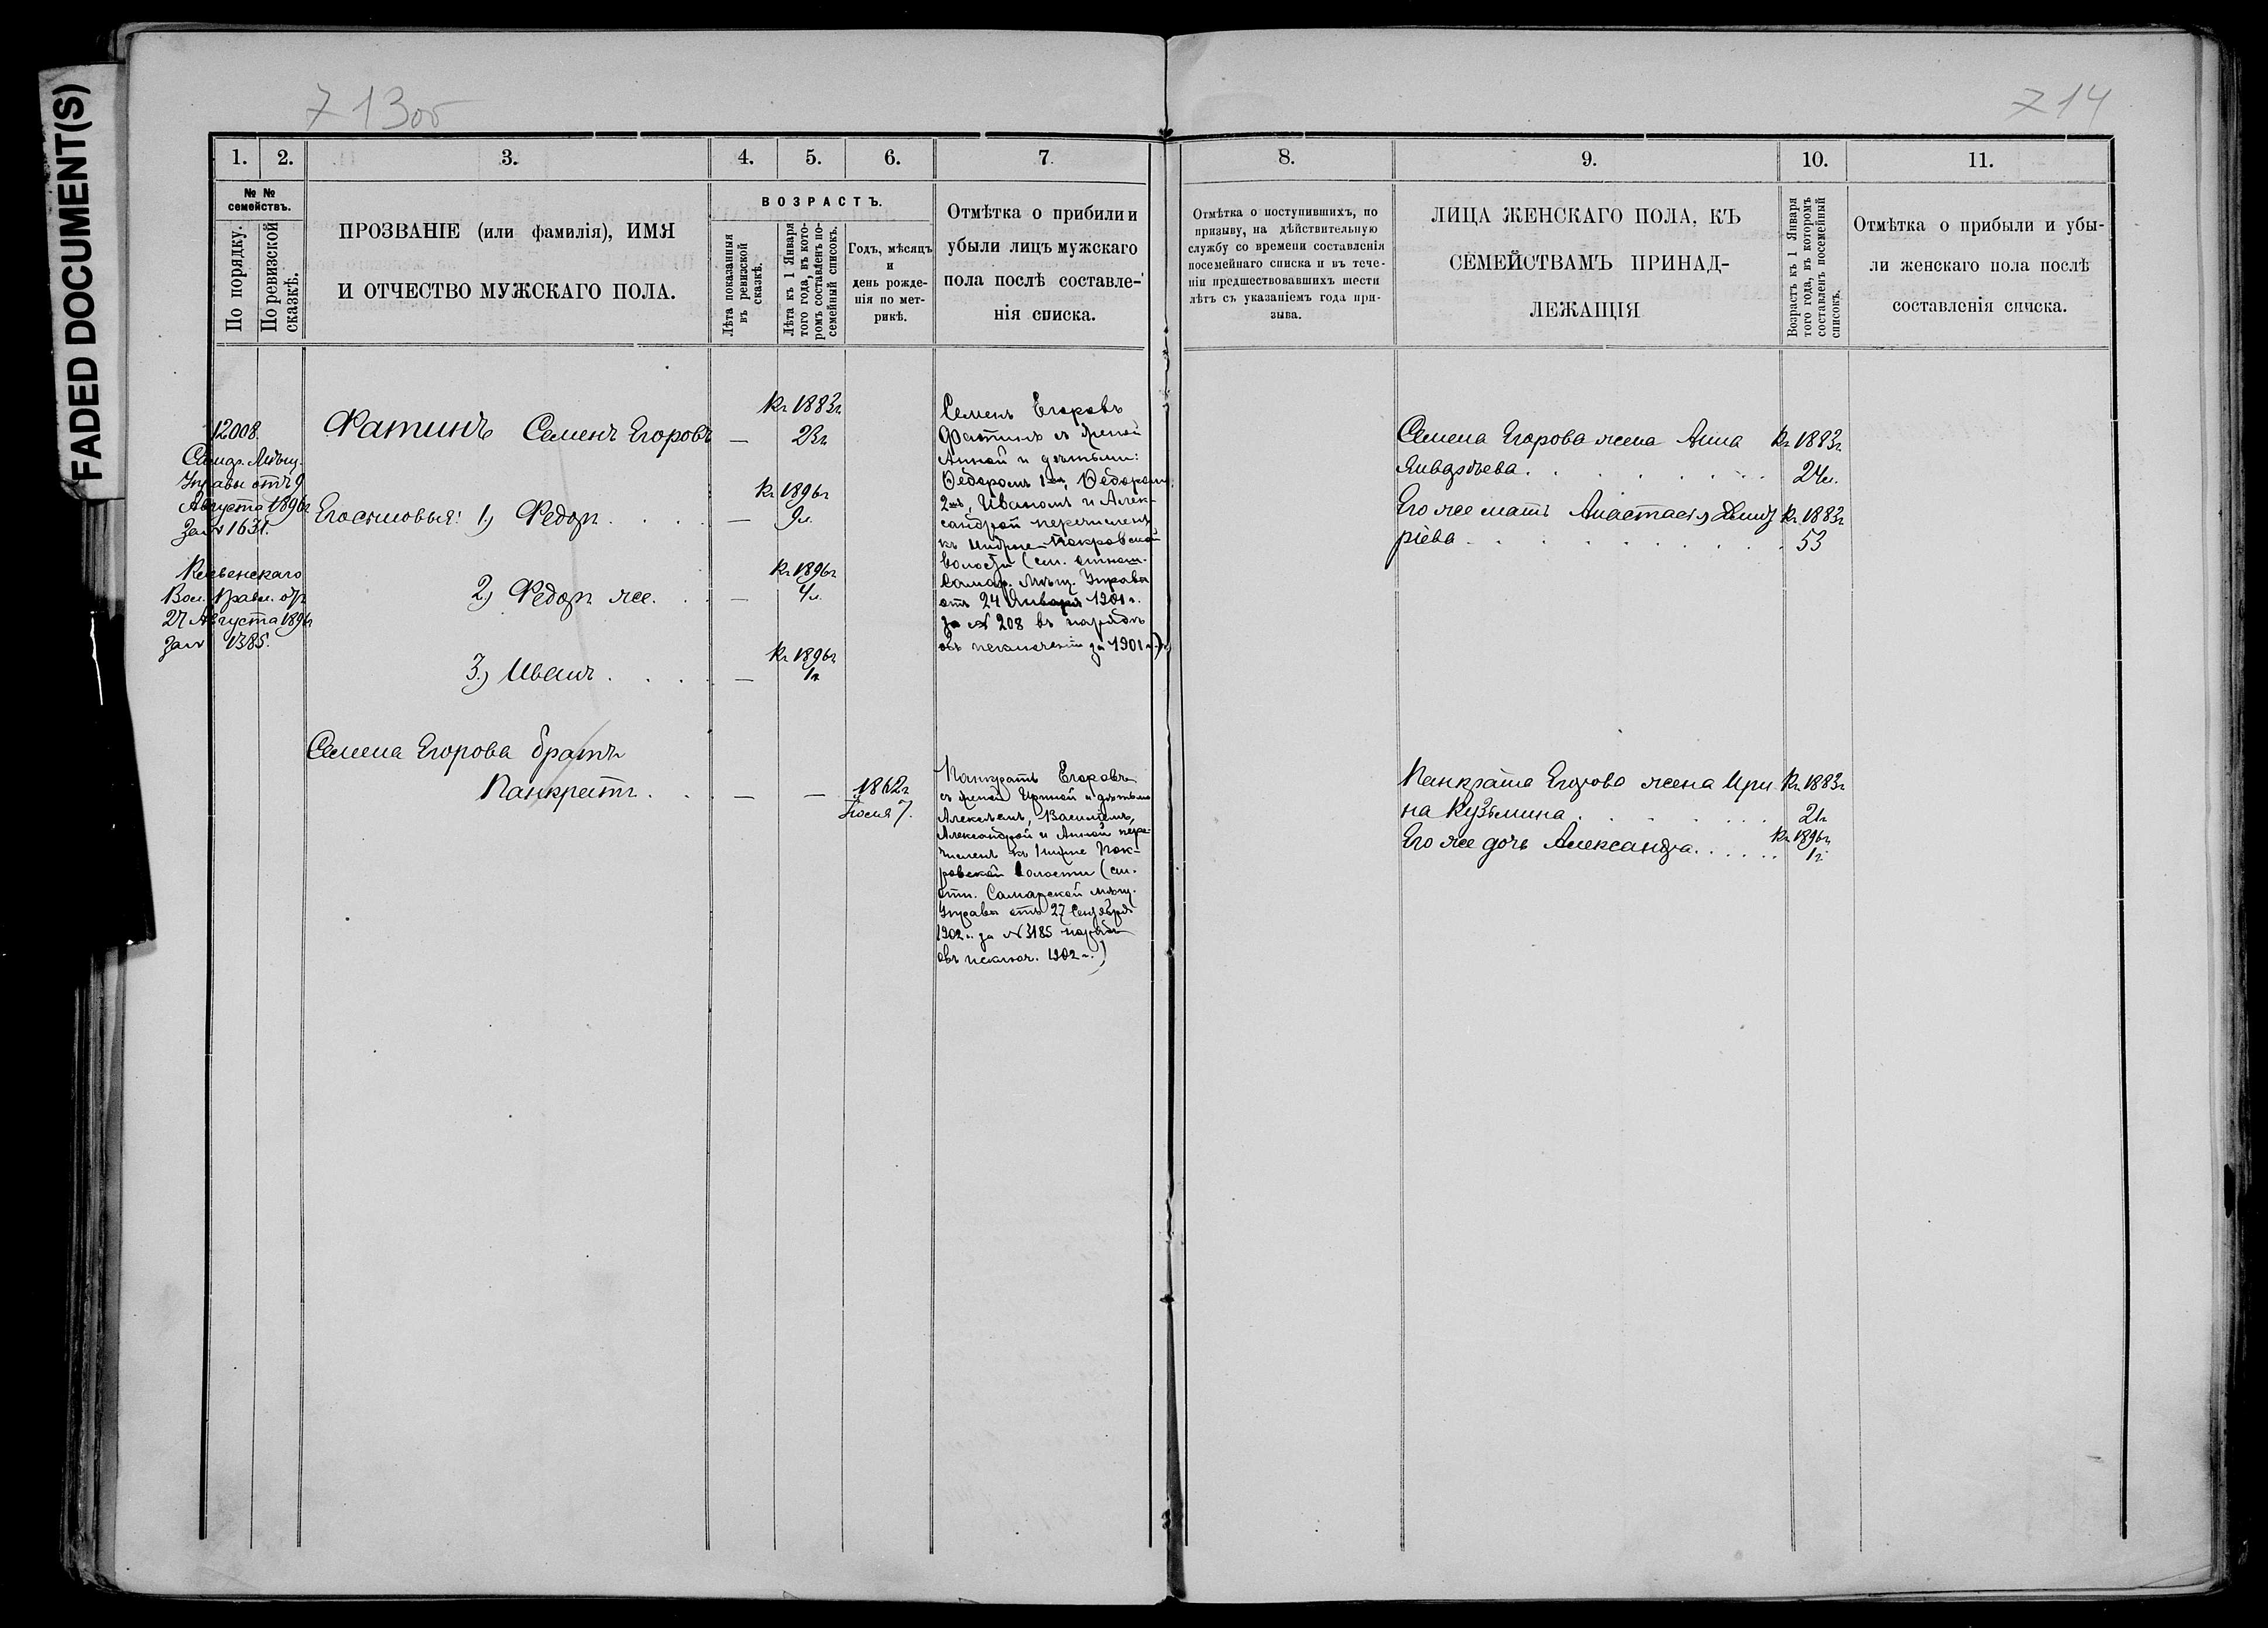 FADED DOCUMENT(S)
713об
714
1.
2.
3.
4.
5.
6.
7.
№ №
семействъ.
По порядку.
По ревизской
сказкѣ.
ПРОЗВАНІЕ (или фамилія), ИМЯ
И ОТЧЕСТВО МУЖСКАГО ПОЛА.
ВОЗРАСТЪ.
Лѣта показанныя
въ ревизской
сказкѣ.
Лѣта къ 1 Января
того года, въ кото-
ромъ составленъ по-
семейный списокъ.
Годъ, мѣсяцъ
и
день рожде-
нія по мет-
рикѣ.
Отмѣтка о прибыли и
убыли лицъ мужскаго
пола послѣ составле-
нія списка.
12008.
Самар. Мѣщ.
Управы отъ 9
Августа 1896г
за № 1631.
Вол. Правл. отъ
27 Августа 1896г
за № 1385.
Фатинъ Семенъ Егоровъ
—
Къ 1883г
23г
Его сыновья: 1.) Федоръ . . . .
—
Къ 1896г
9л.
2.) Федоръ же. .
—
Къ 1896г
4л.
3.) Иванъ . . . .
—
Къ 1896г
1г
Семена Егорова братъ
Панкратъ . .
—
—
1862г
Іюля 7.
Семенъ Егоровъ
Фатинъ съ женой
Анной и дѣтьми:
Ѳедоромъ 1мъ, Ѳедоромъ
2мъ, Иваномъ и Алек-
сандрой перечисленъ
къ Покровской
волости (см. отнош.
Самар. Мѣщ. Управы
отъ 24 Января 1901г.
за № 208 въ нарядѣ
объ исключеніи за 1901г.)
Панкратъ Егоровъ
съ женой Ириной и дѣтьми
Алексѣемъ, Василіемъ,
Александрой и Анной пере-
численъ къ Пок-
ровской волости (см.
отн. Самарской мѣщ.
Управы отъ 27 Сентября
1902г. за № 3185 нарядъ
объ исключ. 1902г.)
8.
9.
10.
11.
Отмѣтка о поступившихъ, по
призыву, на дѣйствительную
службу со времени составленія
посемейнаго списка и въ тече-
ніи предшествовавшихъ шести
лѣтъ съ указаніемъ года при-
зыва.
ЛИЦА ЖЕНСКАГО ПОЛА, КЪ
СЕМЕЙСТВАМЪ ПРИНАД-
ЛЕЖАЩІЯ
Возрастъ къ 1 Января
того года, въ которомъ
составленъ посемейный
списокъ.
Отмѣтка о прибыли и убы-
ли женскаго пола послѣ
составленія списка.
Семена Егорова жена Анна
Къ 1883г
24л.
Его же мать Анастасія Дмит
Къ 1883г
ріева . . . . . . . . .
53
Панкрата Егорова жена Ири
Къ 1883г
на Кузьмина . . . . . .
21г
Его же дочь Александра . . . . .
Къ 1896г
1г.